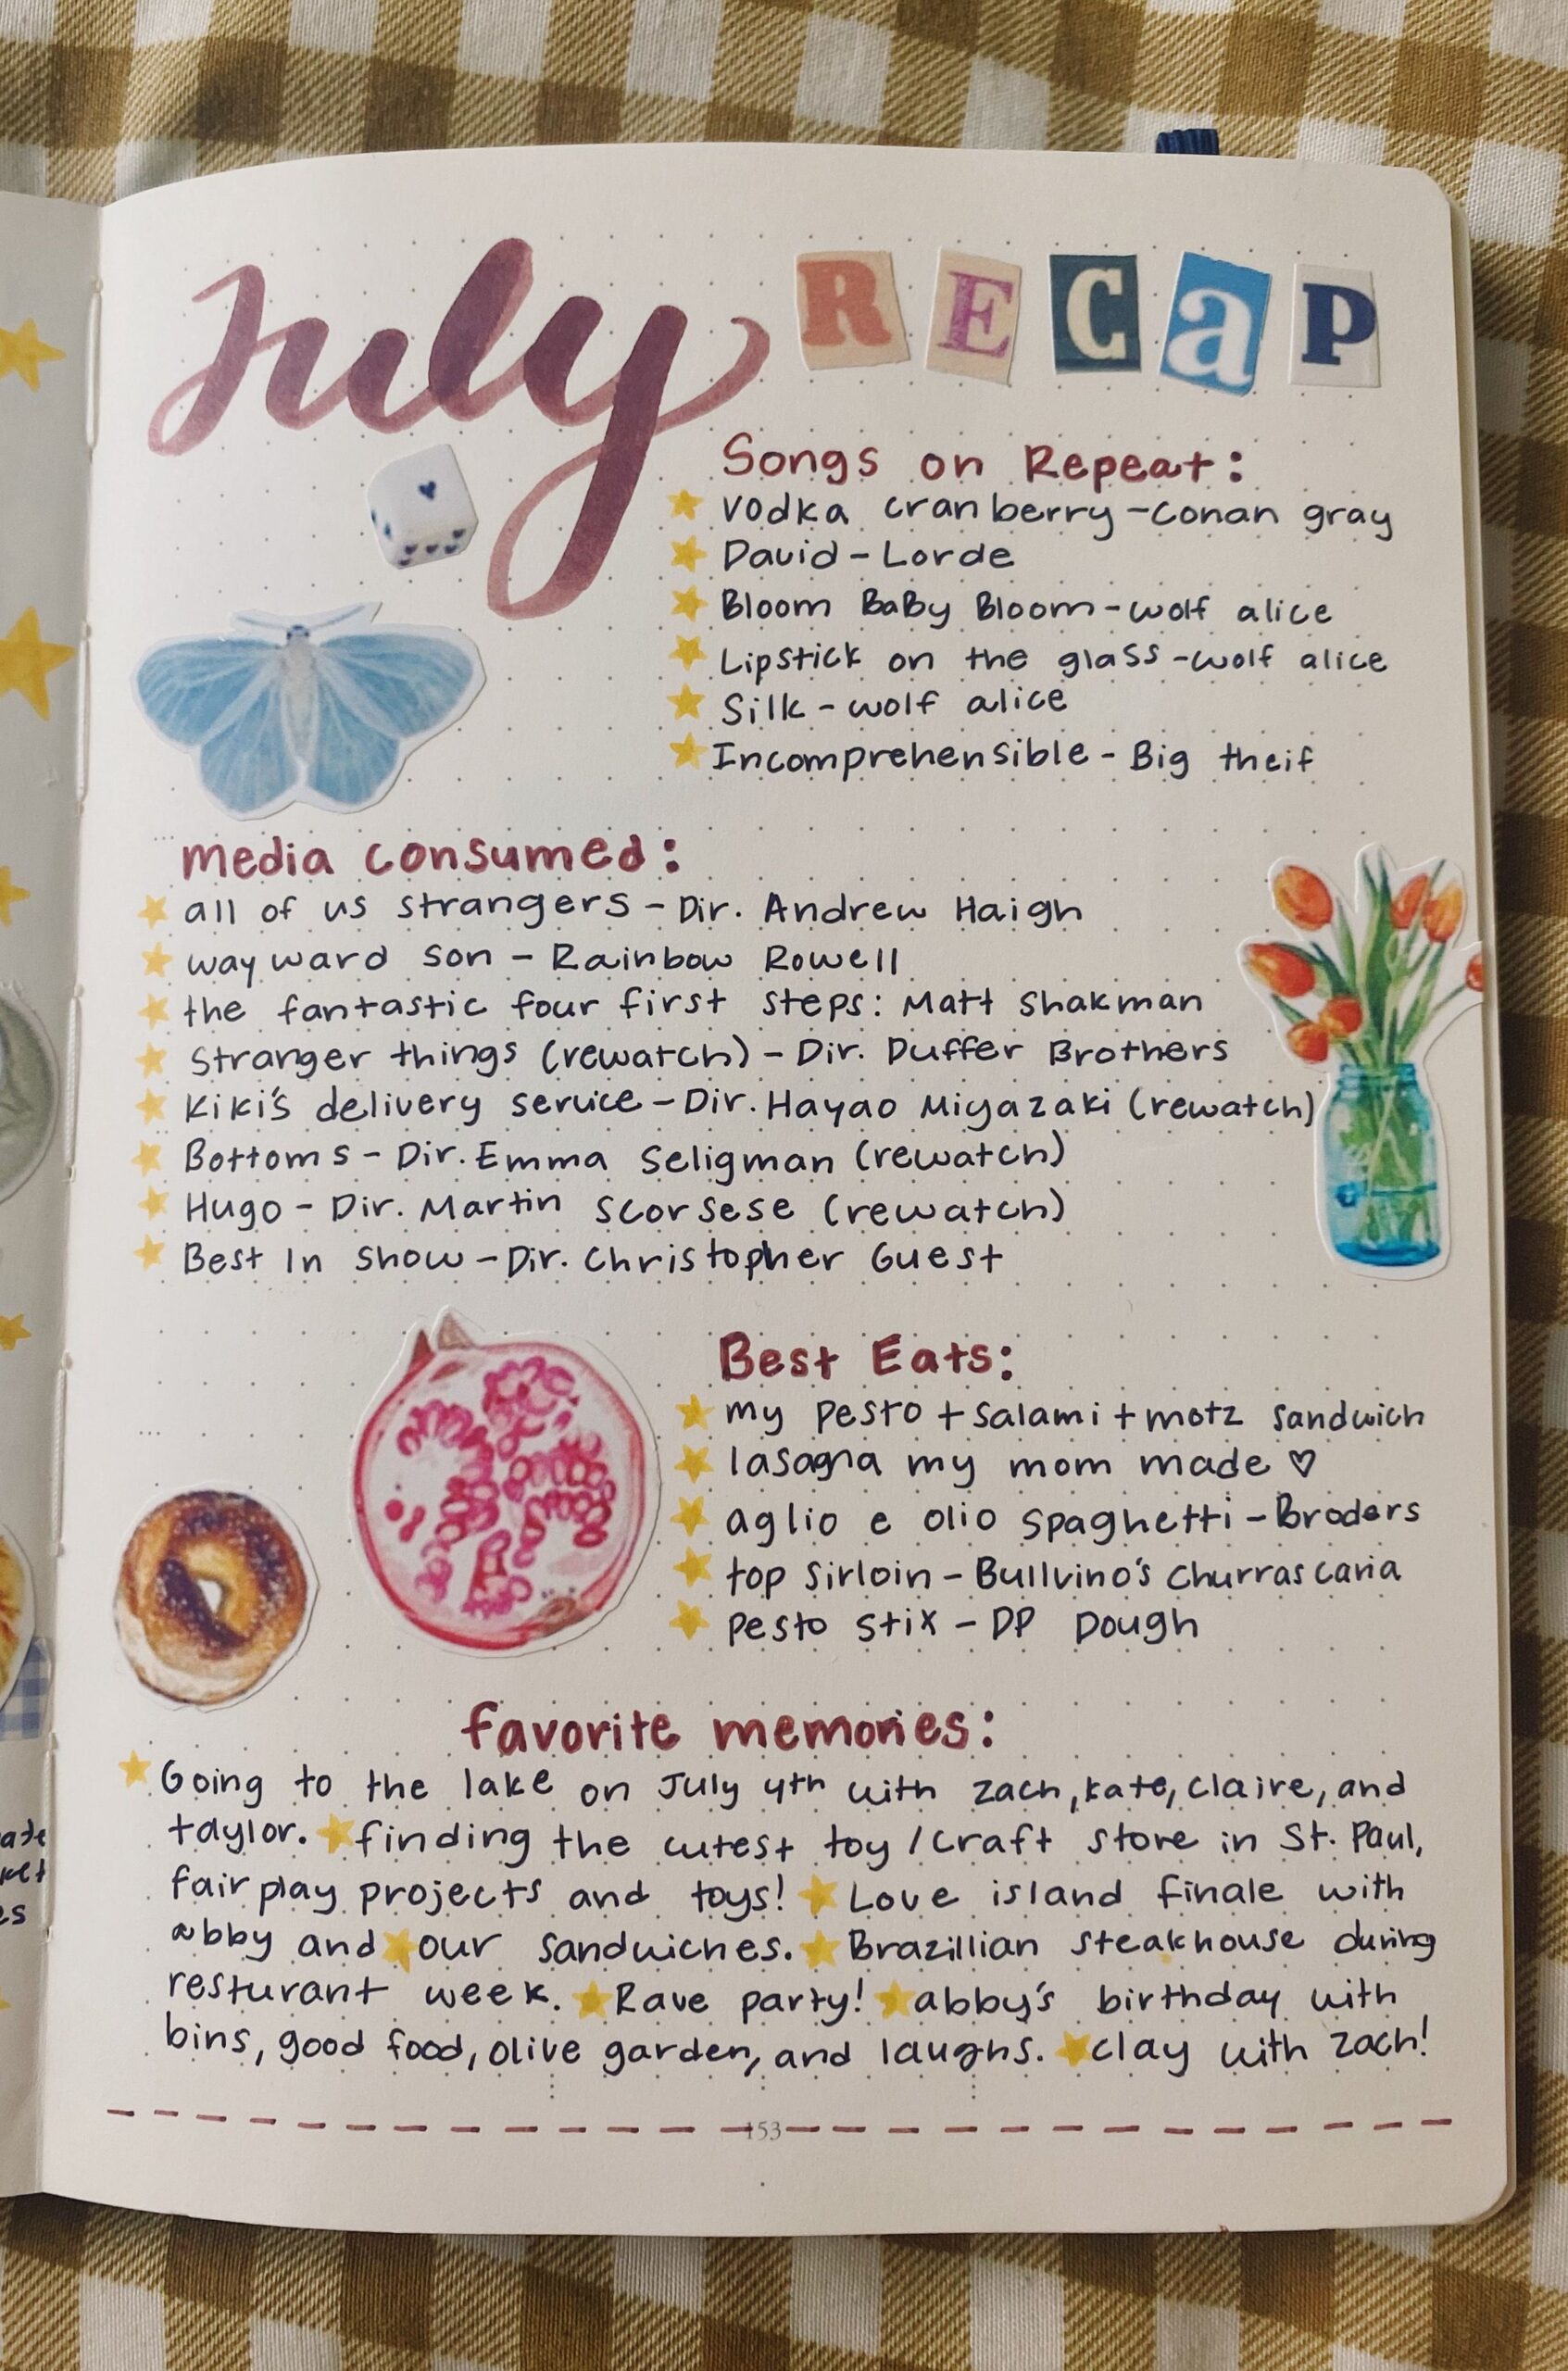 July RECaP
Songs on Repeat:
vodka cranberry - conan gray
David - Lorde
Bloom BaBy Bloom - wolf alice
Lipstick on the glass - wolf alice
Silk - wolf alice
Incomprehensible - Big theif
media consumed:
all of us strangers - Dir. Andrew Haigh
wayward son - Rainbow Rowell
the fantastic four first steps: Matt Shakman
Stranger things (rewatch) - Dir. Duffer Brothers
Kiki's delivery service - Dir. Hayao Miyazaki (rewatch)
Bottoms - Dir. Emma Seligman (rewatch)
Hugo - Dir. Martin Scorsese (rewatch)
Best In Show - Dir. Christopher Guest
Best Eats:
my pesto + salami + motz sandwich
lasagna my mom made ♡
aglio e olio spaghetti - Broders
top sirloin - Bullvino's churrascaria
pesto stix - DP Dough
favorite memories:
Going to the lake on July 4th with zach, kate, claire, and
taylor. finding the cutest toy / craft store in St. Paul,
fair play projects and toys! Love island finale with
abby and our sandwiches. Brazillian steakhouse during
resturant week. Rave party! abby's birthday with
bins, good food, olive garden, and laughs. clay with zach!
153